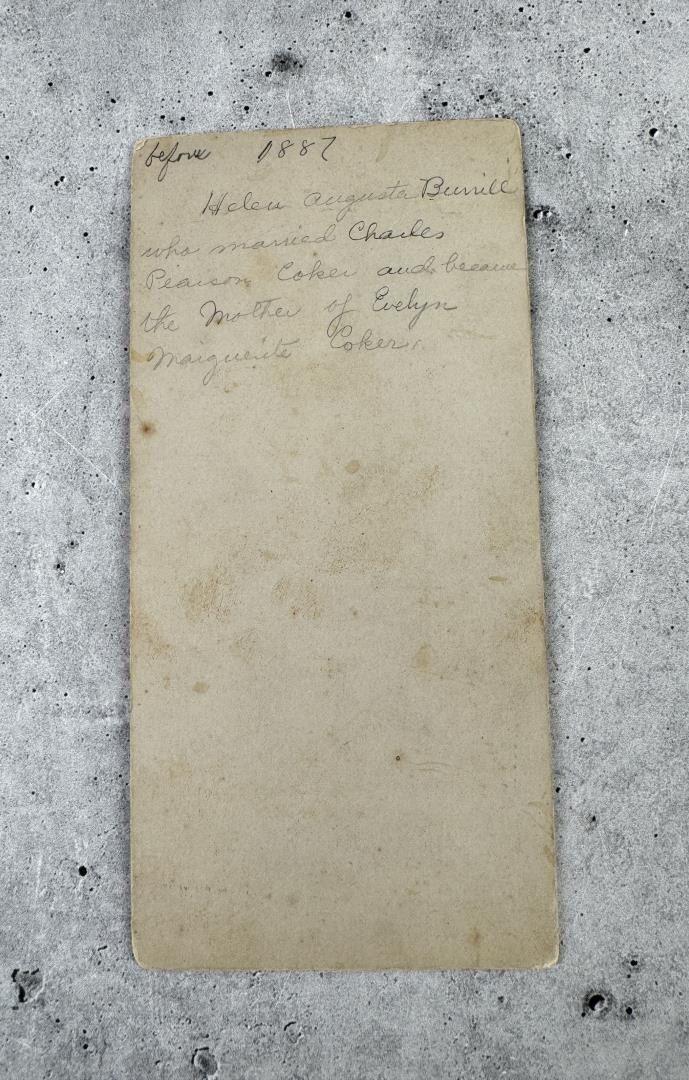 before 1887
Helen Augusta Burrill
who married Charles
Pearson Coker and became
the Mother of Evelyn
Marguerite Coker.